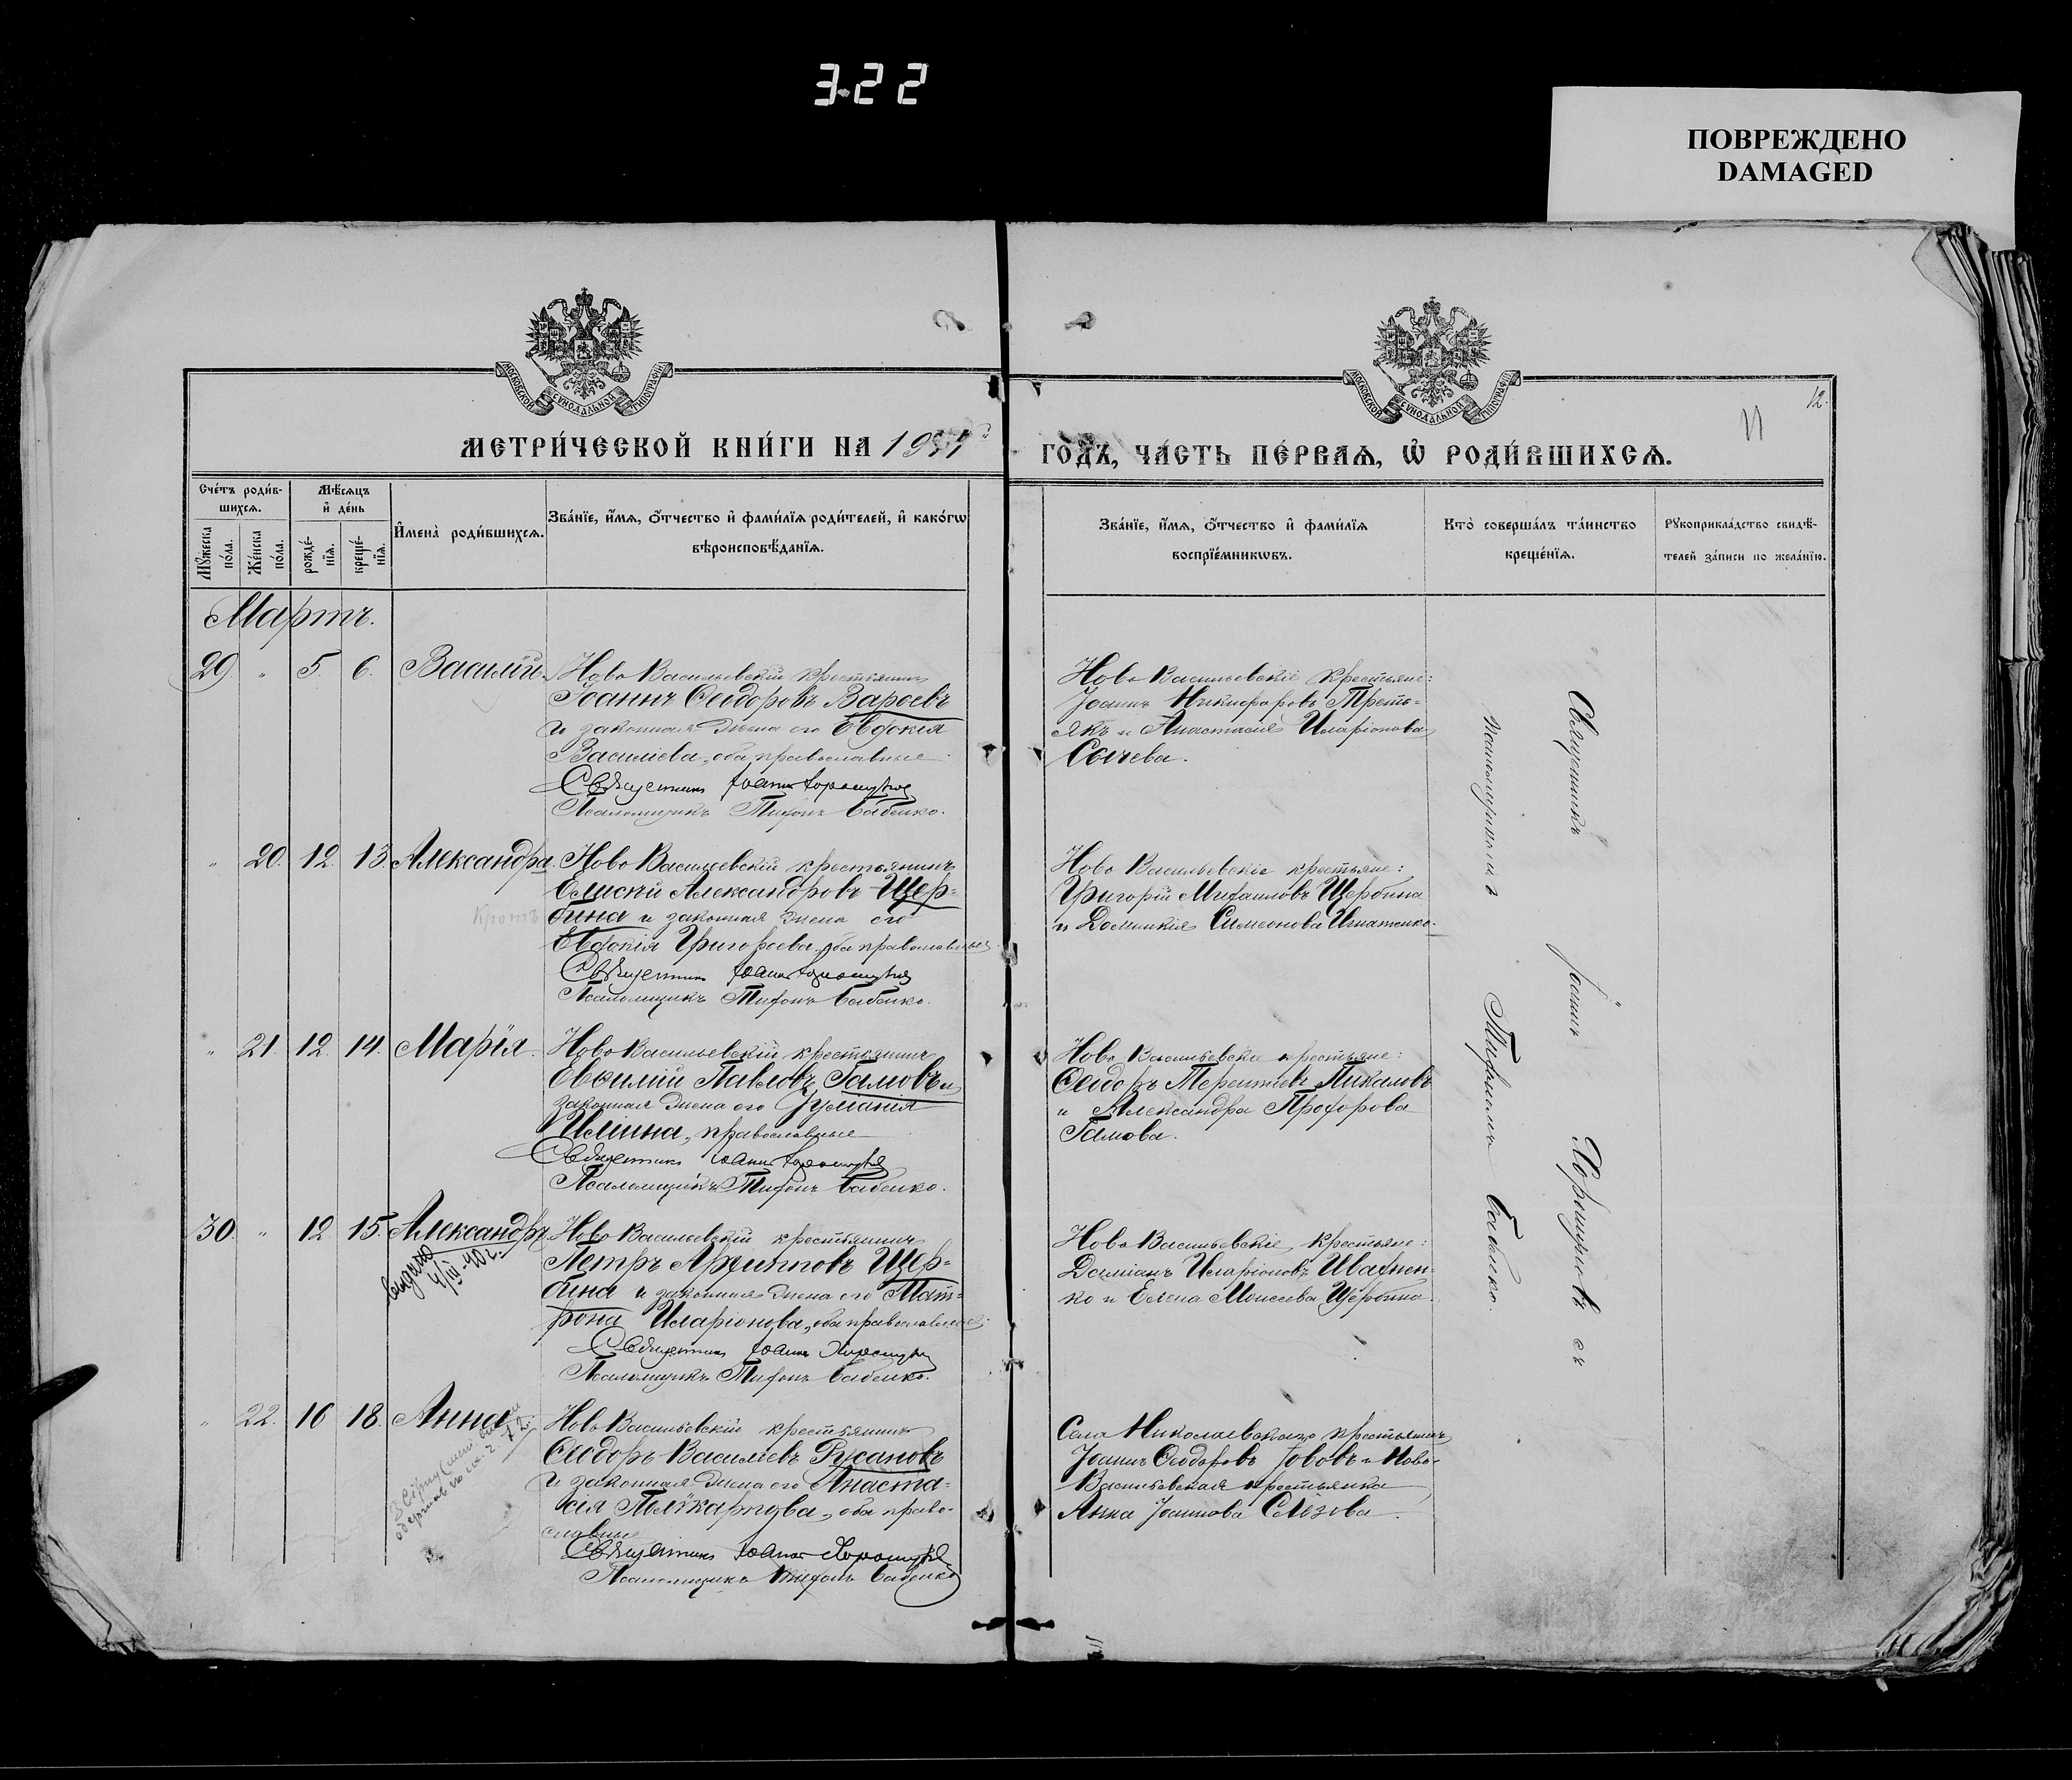 3.22
ПОВРЕЖДЕНО
DAMAGED
МОСКОВСКОЙ СѴНОДАЛЬНОЙ ТИПОГРАФІИ
МОСКОВСКОЙ СѴНОДАЛЬНОЙ ТИПОГРАФІИ
12.
11
МЕТРИ́ЧЕСКОЙ КНИ́ГИ НА
ГО́ДЪ, ЧА́СТЬ ПЕ́РВАѦ, Ѡ҆ РОДИ́ВШИХСѦ.
Сче́тъ роди́в-
шихсѧ.
Мѣ́сѧцъ
и҆ де́нь
Мꙋ́жеска по́ла.
Же́нска по́ла.
рожде́-
нїѧ.
креще́-
нїѧ.
И҆мена̀ роди́вшихсѧ.
Зва́нїе, и҆́мѧ, ѻ҆́тчество и҆ фами́лїѧ роди́телей, и҆ како́гѡ
вѣроисповѣ́данїѧ.
Зва́нїе, и҆́мѧ, ѻ҆́тчество и҆ фами́лїѧ
воспрїе́мникѡвъ.
Кто̀ соверша́лъ та́инство
креще́нїѧ.
Рꙋкоприкла́дство свидѣ́-
телей за́писи по жела́нїю.
Мартъ.
29 " 5. 6. Василій.
Ново Васильевскій крестьянинъ
Іоаннъ Ѳеодоровъ Вароевъ
и законная жена его Евдокія
Василіева, оба православные
Священникъ Іоаннъ Хорошуновъ
Псаломщикъ Тифонъ Бабенко.
Ново Васильевскіе крестьяне:
Іоаннъ Никифоровъ Треть-
якъ и Анастасія Иларіонова
Сычева.
" 20. 12. 13. Александра.
Ново Васильевскій крестьянинъ
Елисей Александровъ Щер-
бина и законная жена его
Евдокія Григорьева, оба православные
Священникъ Іоаннъ Хорошуновъ
Псаломщикъ Тифонъ Бабенко.
Ново Васильевскіе крестьяне:
Григорій Михаиловъ Щербина
и Домникія Симеонова Игнатенко.
" 21. 12. 14. Марія.
Ново Васильевскій крестьянинъ
Павловъ Гамовъ и
законная жена его Іуліанія
Ильина, православные
Священникъ Іоаннъ Хорошуновъ
Псаломщикъ Тифонъ Бабенко.
Ново Васильевскіе крестьяне:
Ѳеодоръ Терентіевъ Пикаловъ
и Александра Прохорова
Гамова.
30. " 12 15. Александръ
выдано
4/III 40 г.
Ново Васильевскій крестьянинъ
Петръ Архиповъ Щер-
бина и законная жена его Мат-
рона Иларіонова, оба православные.
Священникъ Іоаннъ Хорошуновъ
Псаломщикъ Тифонъ Бабенко.
Ново Васильевскіе крестьяне:
Даміанъ Иларіоновъ Ивахнен-
ко и Елена Моисеева Щербина.
" 22. 16 18. Анна
Ново Васильевскій крестьянинъ
Ѳеодоръ Василіевъ Русановъ
и законная жена его Анаста-
сія Поликарпова, оба право-
славные
Священникъ Іоаннъ Хорошуновъ
Псаломщикъ Тифонъ Бабенко
Села Николаевскаго крестьянинъ
Іоаннъ Ѳеодоровъ Іововъ и Ново-
Васильевская крестьянка
Анна Іоаннова Слѣзова.
Священникъ Іоаннъ Хорошуновъ съ
псаломщикомъ Бабенко.